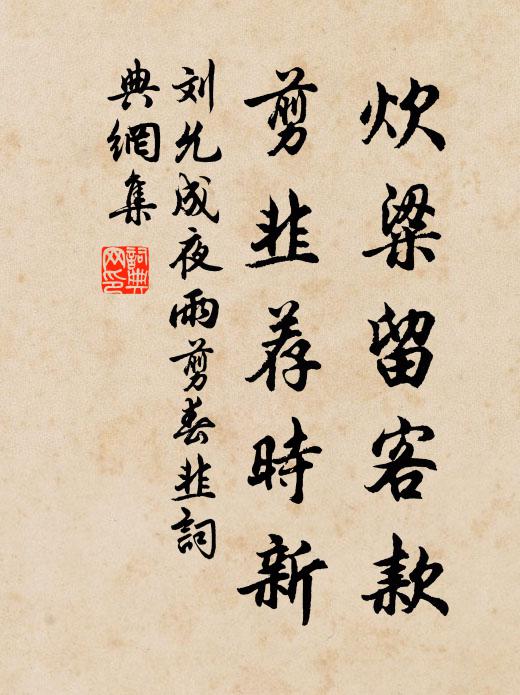 炊粱留客款
剪韭荐時新
刘允成夜雨剪春韭詞
典網集
詞典网印